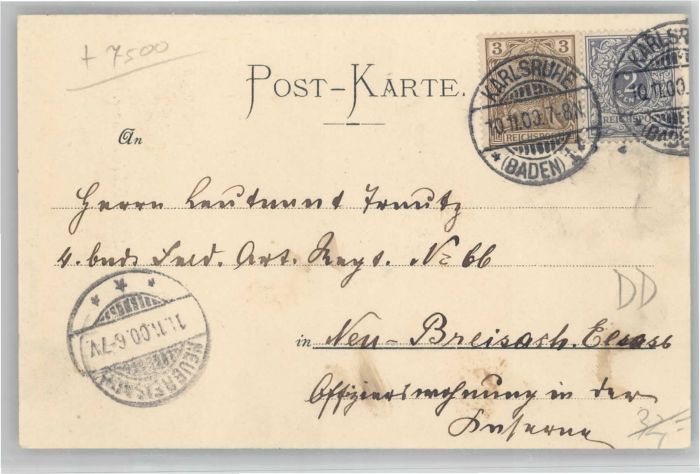 + 7500
POST-KARTE.
3 3
REICHSPOST
2
REICHSPOST
KARLSRUHE
10.11.00.7-8N.
(BADEN)
KARLSRUHE
10.11.00.
(BADEN)
An
Herrn Leutnant Trautz
4. bad. Feld. Art. Regt. No 66
DD
in Neu-Breisach. Elsass
Offizierswohnung in der
Kaserne
11.11.00.6-7V.
NEUBREISACH